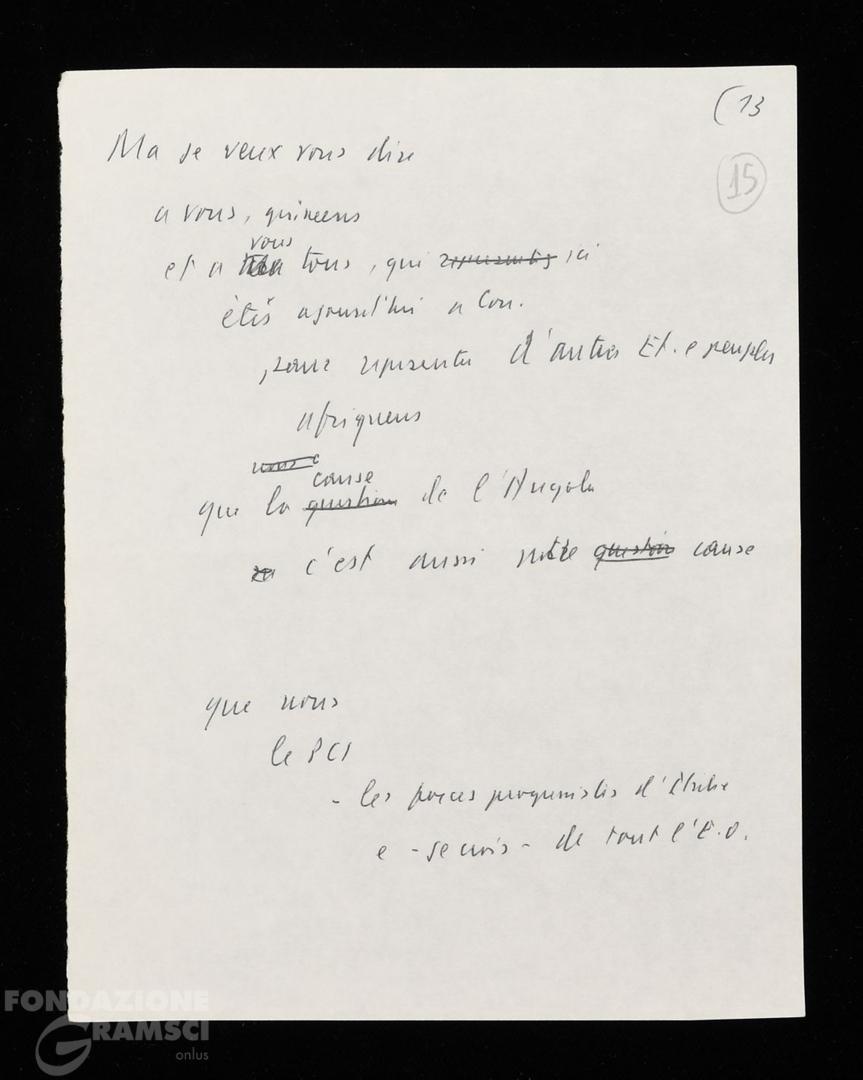 (13
15
Ma je veux vous dire
a vous, guineens
vous
et a tous, qui representes ici
étés ajourd'hui a Con.
pour representer d'autres Et. e peuples
afriquens
nous
cause
que la question de l'Angola
c'est aussi notre question cause
que nous
le PCI
- les forces progressistes d'Italie
e - je crois - de tout l'E.O.
FONDAZIONE
GRAMSCI
onlus